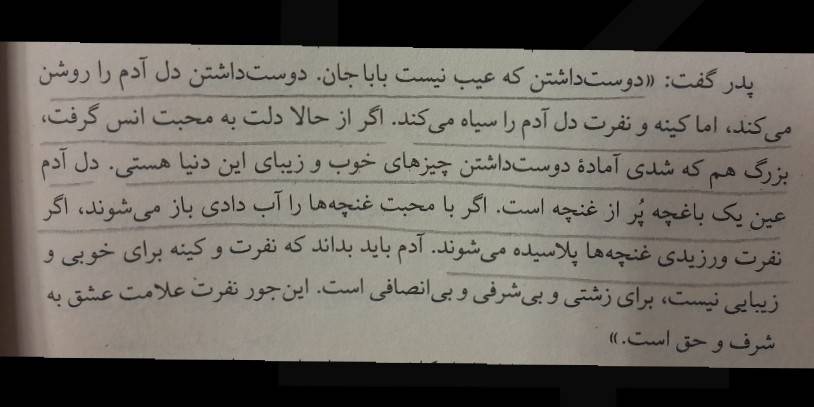 پدر گفت: «دوست‌داشتن که عیب نیست باباجان. دوست‌داشتن دل آدم را روشن
می‌کند، اما کینه و نفرت دل آدم را سیاه می‌کند. اگر از حالا دلت به محبت انس گرفت،
بزرگ هم که شدی آمادهٔ دوست‌داشتن چیزهای خوب و زیبای این دنیا هستی. دل آدم
عین یک باغچه پُر از غنچه است. اگر با محبت غنچه‌ها را آب دادی باز می‌شوند، اگر
نفرت ورزیدی غنچه‌ها پلاسیده می‌شوند. آدم باید بداند که نفرت و کینه برای خوبی و
زیبایی نیست، برای زشتی و بی‌شرفی و بی‌انصافی است. این‌جور نفرت علامت عشق به
شرف و حق است.»